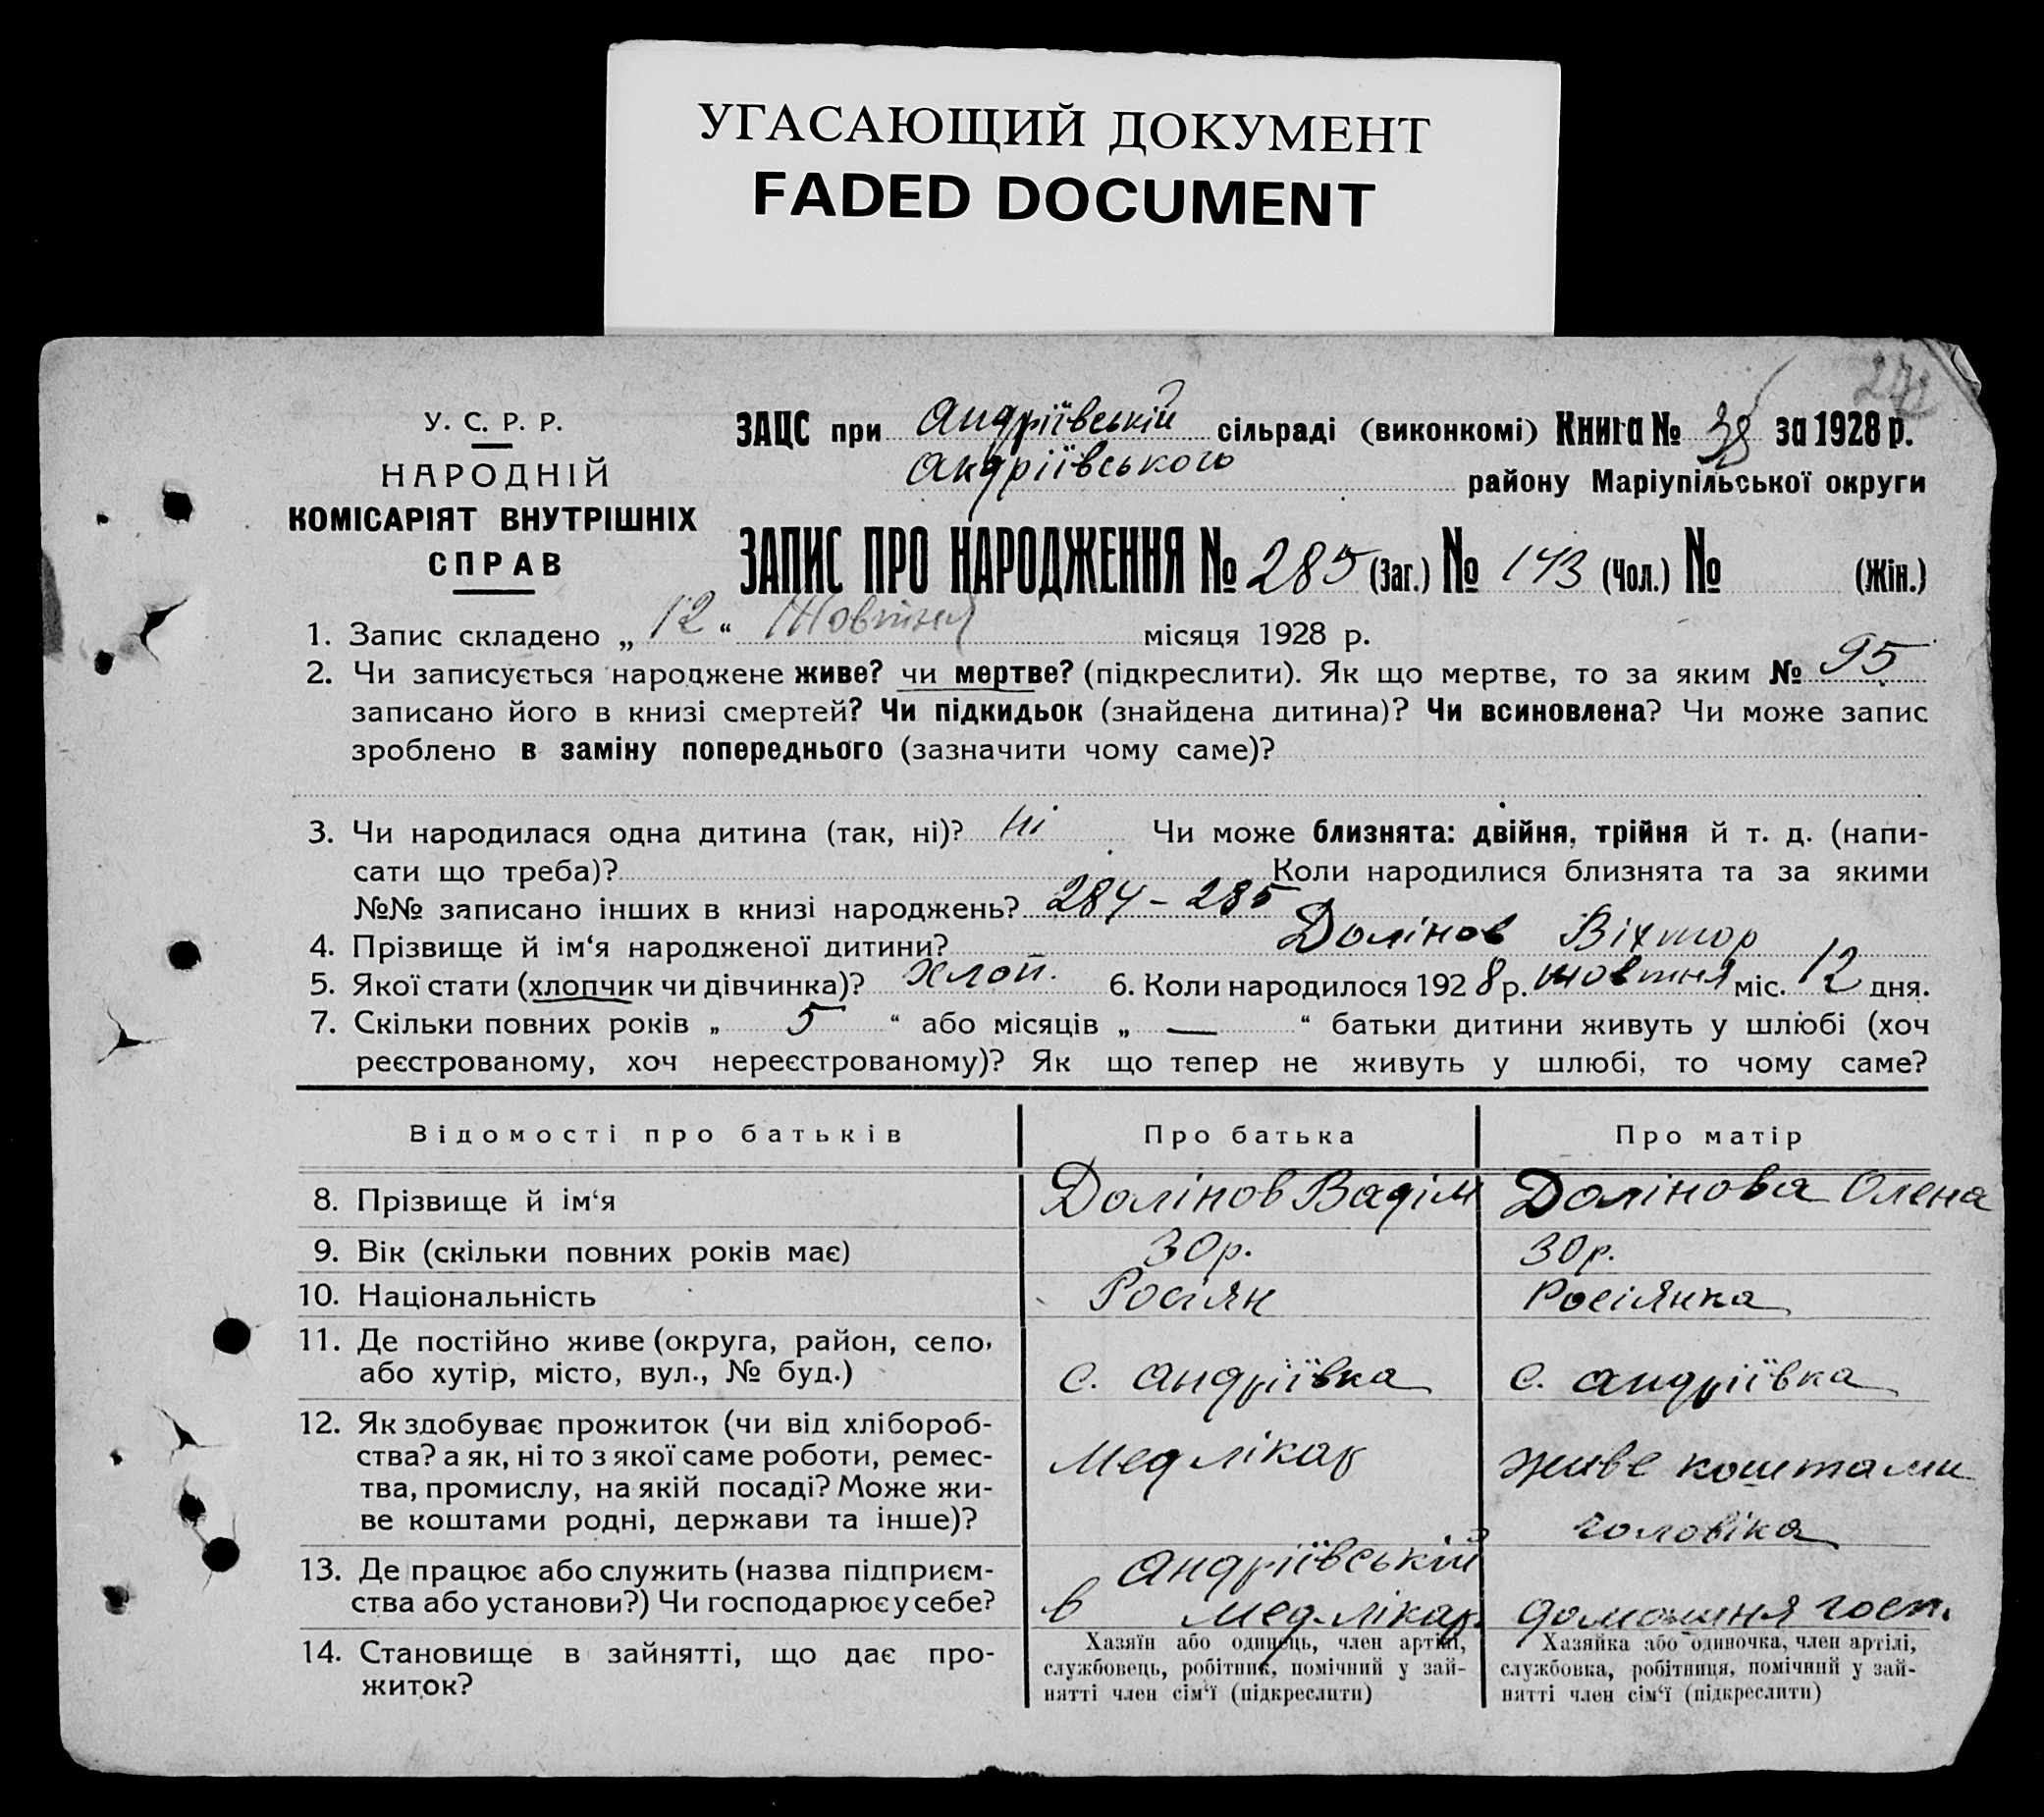 УГАСАЮЩИЙ ДОКУМЕНТ
FADED DOCUMENT
У. С. Р. Р.
НАРОДНІЙ
КОМІСАРІЯТ ВНУТРІШНІХ
СПРАВ
ЗАЦС при Андріївській сільраді (виконкомі) Книга № 38 за 1928 р.
Андріївського району Маріупільської округи
ЗАПИС ПРО НАРОДЖЕННЯ № 285 (Заг.) № 143 (Чол.) № (Жін.)
1. Запис складено „ 12 “ Жовтня місяця 1928 р.
2. Чи записується народжене живе? чи мертве? (підкреслити). Як що мертве, то за яким № 95
записано його в книзі смертей? Чи підкидьок (знайдена дитина)? Чи всиновлена? Чи може запис
зроблено в заміну попереднього (зазначити чому саме)?
3. Чи народилася одна дитина (так, ні)? ні Чи може близнята: двійня, трійня й т. д. (напи-
сати що треба)? Коли народилися близнята та за якими
№№ записано інших в книзі народжень? 284 – 285
4. Прізвище й ім‘я народженої дитини? Долінов Віхтор
5. Якої стати (хлопчик чи дівчинка)? хлоп. 6. Коли народилося 1928 р. жовтня міс. 12 дня.
7. Скільки повних років „ 5 “ або місяців „ — “ батьки дитини живуть у шлюбі (хоч
реєстрованому, хоч нереєстрованому)? Як що тепер не живуть у шлюбі, то чому саме?
Відомості про батьків Про батька Про матір
8. Прізвище й ім‘я Долінов Вадім Долінова Олена
9. Вік (скільки повних років має) 30 р. 30 р.
10. Національність Росіян Росіянка
11. Де постійно живе (округа, район, село,
або хутір, місто, вул., № буд.) с. Андріївка с. Андріївка
12. Як здобуває прожиток (чи від хлібороб-
ства? а як, ні то з якої саме роботи, ремес- Мед лікар живе коштами
тва, промислу, на якій посаді? Може жи-
ве коштами родні, держави та інше)? головіка
13. Де працює або служить (назва підприєм- Андріївській
ства або установи?) Чи господарює у себе? в Мед-лікар. домашня госп.
14. Становище в зайнятті, що дає про-
житок?
Хазяїн або одинець, член артілі,
службовець, робітник, помічний у зай-
нятті член сім‘ї (підкреслити)
Хазяйка або одиночка, член артілі,
службовка, робітниця, помічний у зай-
нятті член сім‘ї (підкреслити)